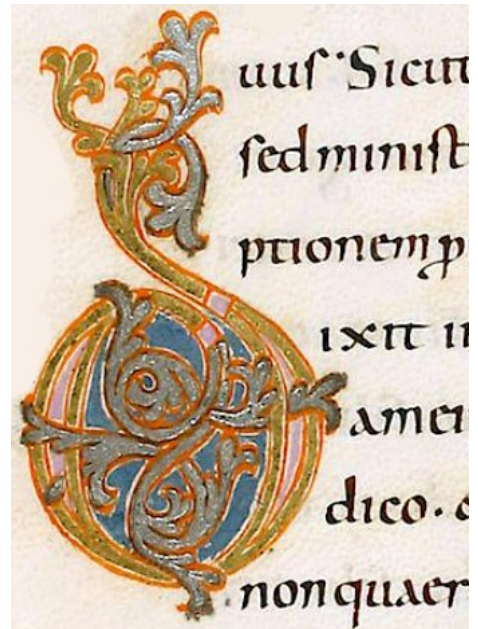 uus · Sicut
sed minist
ptionem ꝓ
Dixit in
amen
dico ·
non quaer